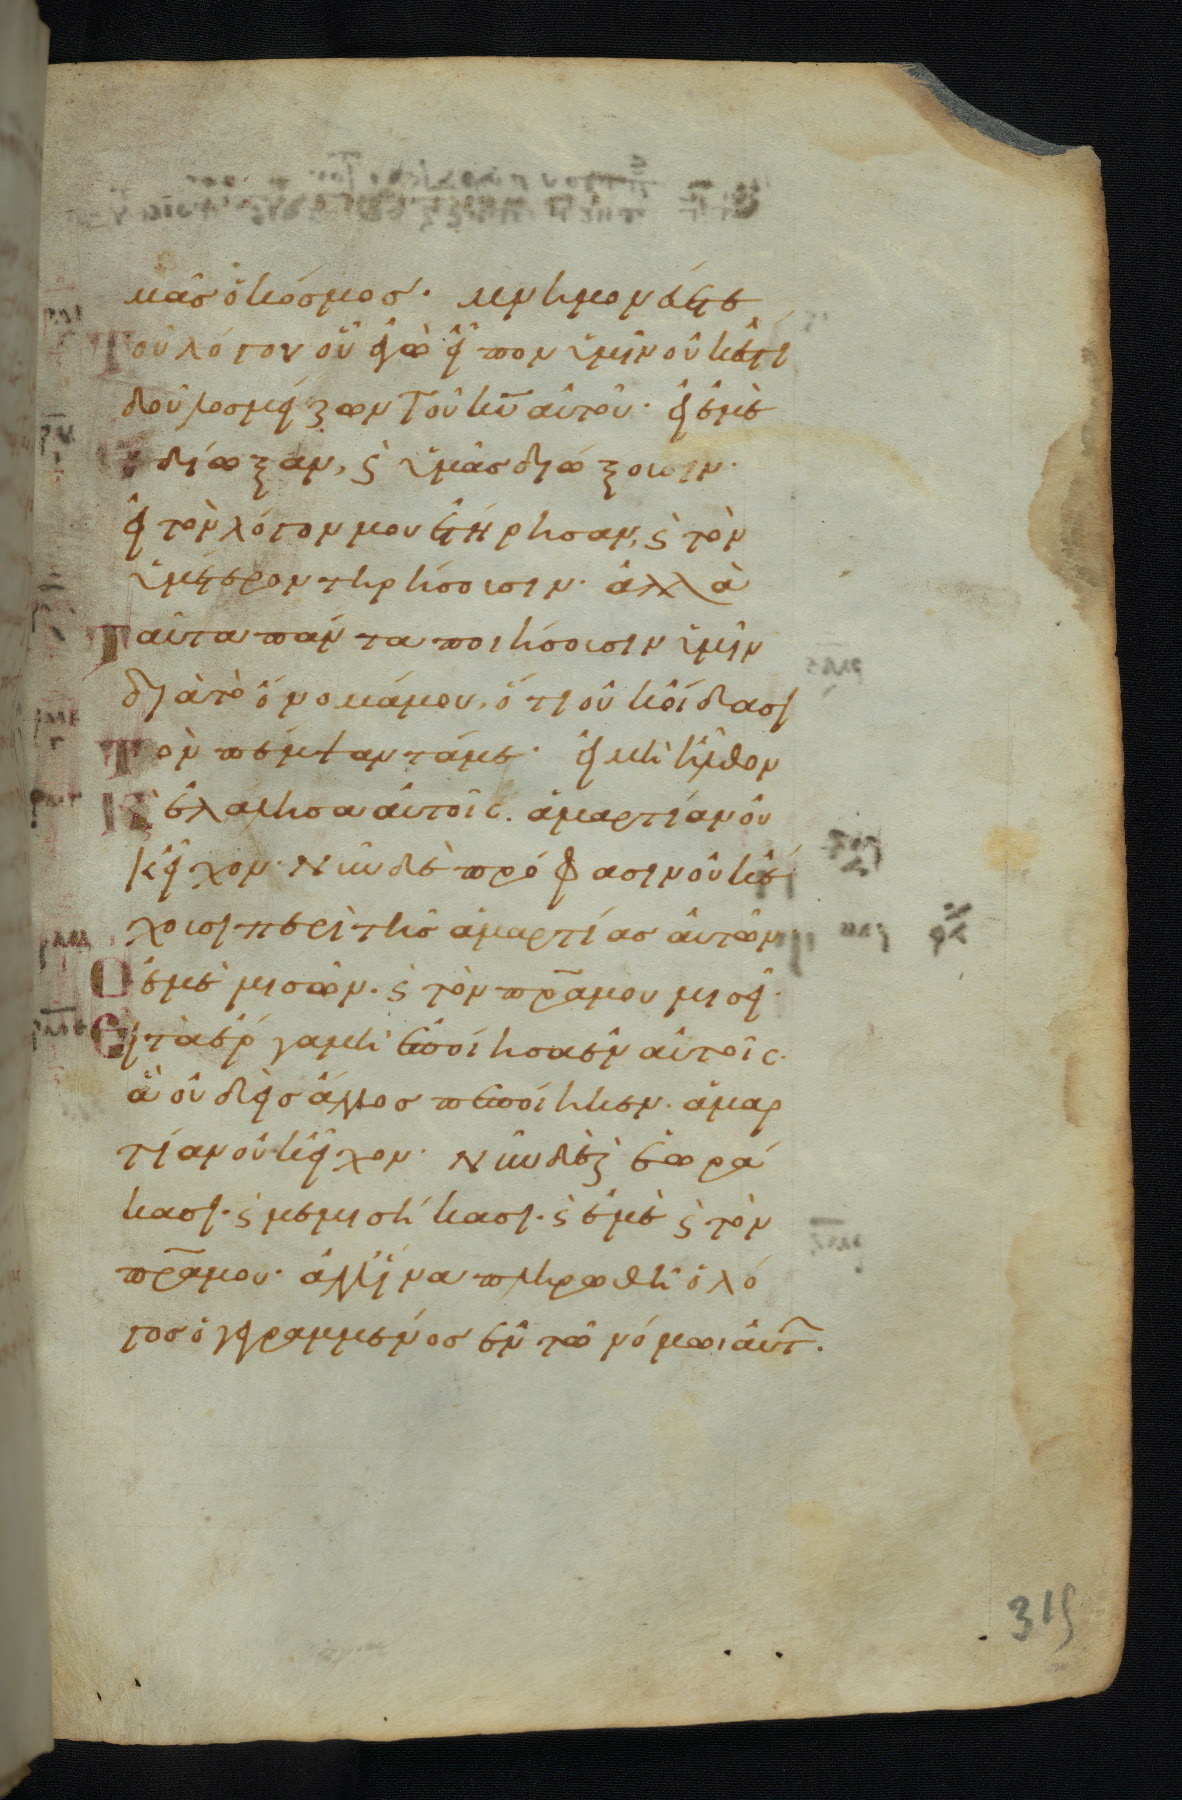 μᾶς ὁ κόσμος· μνημονεύετε
Τοῦ λόγου οὗ ἐγὼ εἶπον ὑμῖν οὐκ ἔστι
δοῦλος μείζων τοῦ κ̅υ̅ αὐτοῦ· εἰ ἐμὲ
ἐδίωξαν, ϗ ὑμᾶς διώξουσιν·
εἰ τὸν λόγον μου ἐτήρησαν, ϗ τὸν
ὑμέτερον τηρήσουσιν· ἀλλὰ
Ταῦτα πάντα ποιήσουσιν ὑμῖν
διὰ τὸ ὄνομά μου, ὅτι οὐκ οἴδασι
Τὸν πέμψαντά με· εἰ μὴ ἦλθον
Κ ἐλάλησα αὐτοῖς· ἁμαρτίαν οὐ
κ εἶχον· νῦν δὲ πρόφασιν οὐκ ἔ
χουσι περὶ τῆς ἁμαρτίας αὐτῶν
Ὁ ἐμὲ μισῶν· ϗ τὸν π̅ρ̅α̅ μου μισεῖ·
Εἰ τὰ ἔργα μὴ ἐποίησα ἐν αὐτοῖς·
ἃ οὐδεὶς ἄλλος πεποίηκεν· ἁμαρ
τίαν οὐκ εἶχον· νῦν δὲ ϗ ἑωρά
κασι· ϗ μεμισήκασι· ϗ ἐμὲ ϗ τὸν
π̅ρ̅α̅ μου· ἀλλ' ἵνα πληρωθῆ ὁ λό
γος ὁ γεγραμμένος ἐν τῶ νόμωι αὐτ.
315